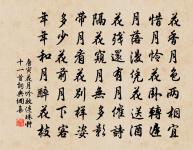 花香月色兩相宜
惜月憐花臥轉遲
月落漫凭花送酒
花殘還有月催詩
隔花窺月無多影
帶月看花別樣姿
多少花前月下客
年年和月醉花枝
唐寅花月吟效連珠體
十一首詞典網集